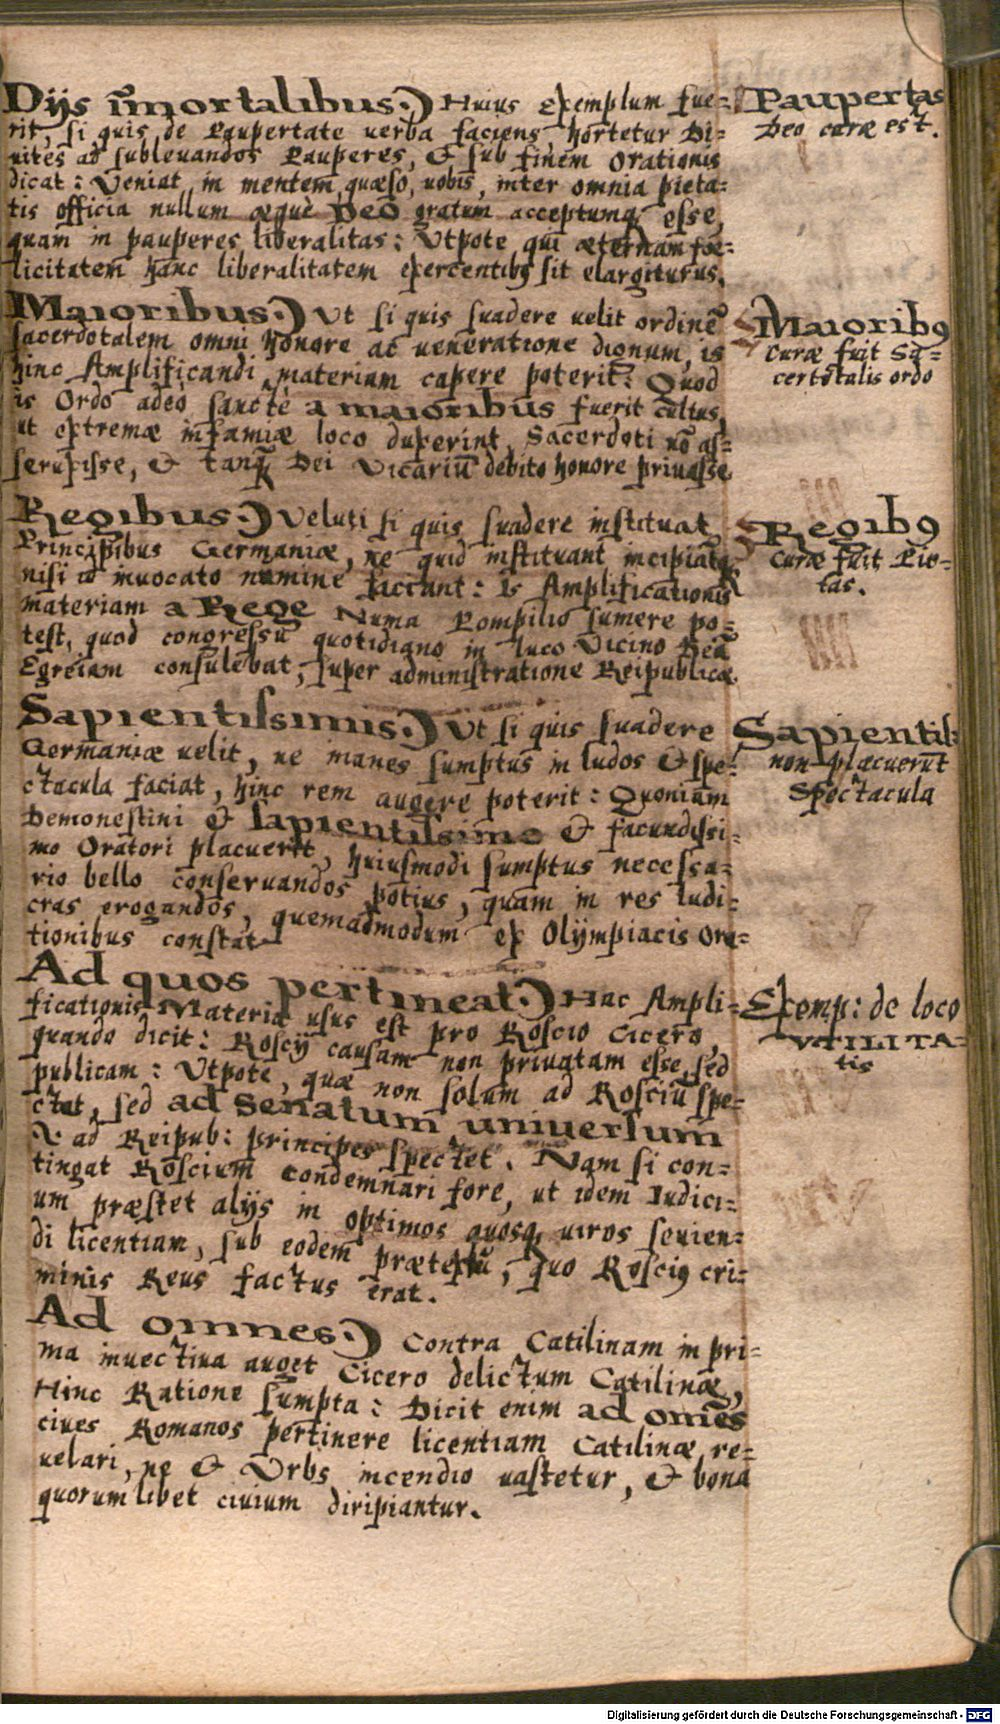 Dijs im̃ortalibus.) Huius Exemplum fue=
rit, si quis de Paupertate uerba faciens, hortetur Di=
uites ad subleuandos Pauperes, & sub finem orationis
dicat: Veniat in mentem, quæso, uobis, inter omnia pieta=
tis officia nullum æquè Deo gratum acceptumq; esse,
quam in pauperes liberalitas: Utpote qui æternam foe=
licitatem hanc liberalitatem exercentibꝰ sit elargiturus.
Paupertas
Deo curæ est.
Maioribus.) Vt si quis suadere uelit ordinẽ
sacerdotalem omni honore ac ueneratione dignum, is
hinc Amplificandi materiam capere poterit: Quod
is Ordo adeo sanctè a maioribus fuerit cultus,
ut extremæ infamiæ loco duxerint, Sacerdoti nõ as=
seruisse, & tanq̃ Dei Vicariũ debito honore priuasse
Maioribꝰ
Curæ fuit Sa=
certotalis ordo
Regibus.) Veluti si quis suadere instituat
Principibus Germaniæ, ne quid instituant incipiantq;
nisi id inuocato numine faciant: Is Amplificationis
materiam a Rege Numa Pompilio sumere po=
test, quod congressũ quotidiano in luco Vicino Deã
Egeriam consulebat, super administratione Reipublicæ.
Regibꝰ
Curæ fuit Pie=
tas.
Sapientissimis.) Vt si quis suadere
Germaniæ uelit, ne manes sumptus in ludos & spe=
ctacula faciat, hinc rem augere poterit: Quoniam
Demonestini & sapientissimo & facundissi=
mo Oratori placuerit, huiusmodi sumptus necessa=
rio bello conseruandos potius, quam in res ludi=
cras erogandos, quemadmodum ex Olijmpiacis Ora=
tionibus constat
Sapientis:
non placuerũt
Spectacula
Ad quos pertineat.) Hac Ampli=
ficationis Materia usus est pro Roscio Cicero,
quando dicit: Roscij causam non priuatam esse, sed
publicam: Utpote, quæ non solum ad Rosciũ spe=
ctat, sed ad Senatum uniuersum
& ad Reipub: principes spectet. Nam si con=
tingat Roscium condemnari fore, ut idem Iudici=
um præstet alijs in optimos quosq; uiros seuien=
di licentiam, sub eodem prætextu, quo Rosciꝰ cri=
minis Reus factus erat.
Exemp: de loco
VTILITA=
tis
Ad omnes.) Contra Catilinam in pri=
ma inuectiua auget Cicero delictum Catilinæ,
Hinc Ratione sumpta: Dicit enim ad om̃es
ciues Romanos pertinere licentiam Catilinæ re=
uelari, ne & Vrbs incendio uastetur, & bona
quorumlibet ciuium diripiantur.
Digitalisierung gefördert durch die Deutsche Forschungsgemeinschaft - DFG